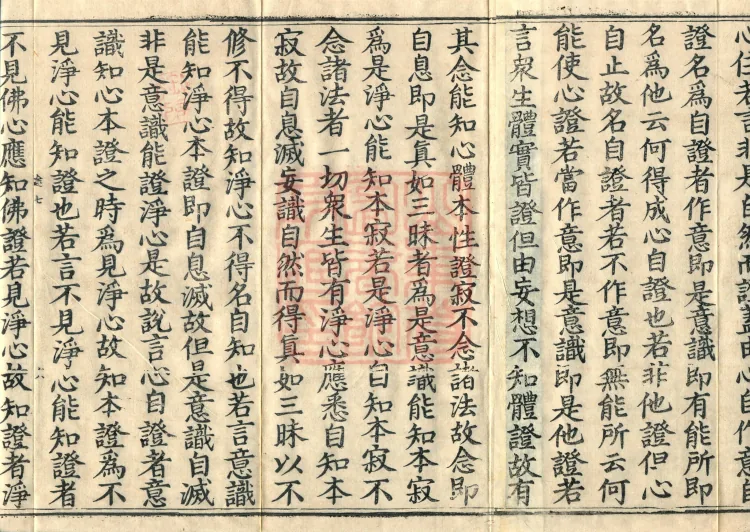 若言非是自然而證直由心自作意自
證名爲自證者作意即是意識即有能所即
名爲他云何得成心自證也若非他證但心
自止故名自證者若不作意即無能所云何
能使心證若當作意即是意識即是他證若
言衆生體實皆證但由妄想不知體證故有
其念能知心體本性證寂不念諸法故念即
自息即是眞如三昧者爲是意識能知本寂
爲是淨心能知本寂若是淨心自知本寂不
念諸法者一切衆生皆有淨心應悉自知本
寂故自息滅妄識自然而得眞如三昧以不
修不得故知淨心不得名自知也若言意識
能知淨心本證即自息滅故但是意識自滅
非是意識能證淨心是故說言心自證者意
識知心本證之時爲見淨心故知本證爲不
見淨心能知證也若言不見淨心能知證者
不見佛心應知佛證若見淨心故知證者淨